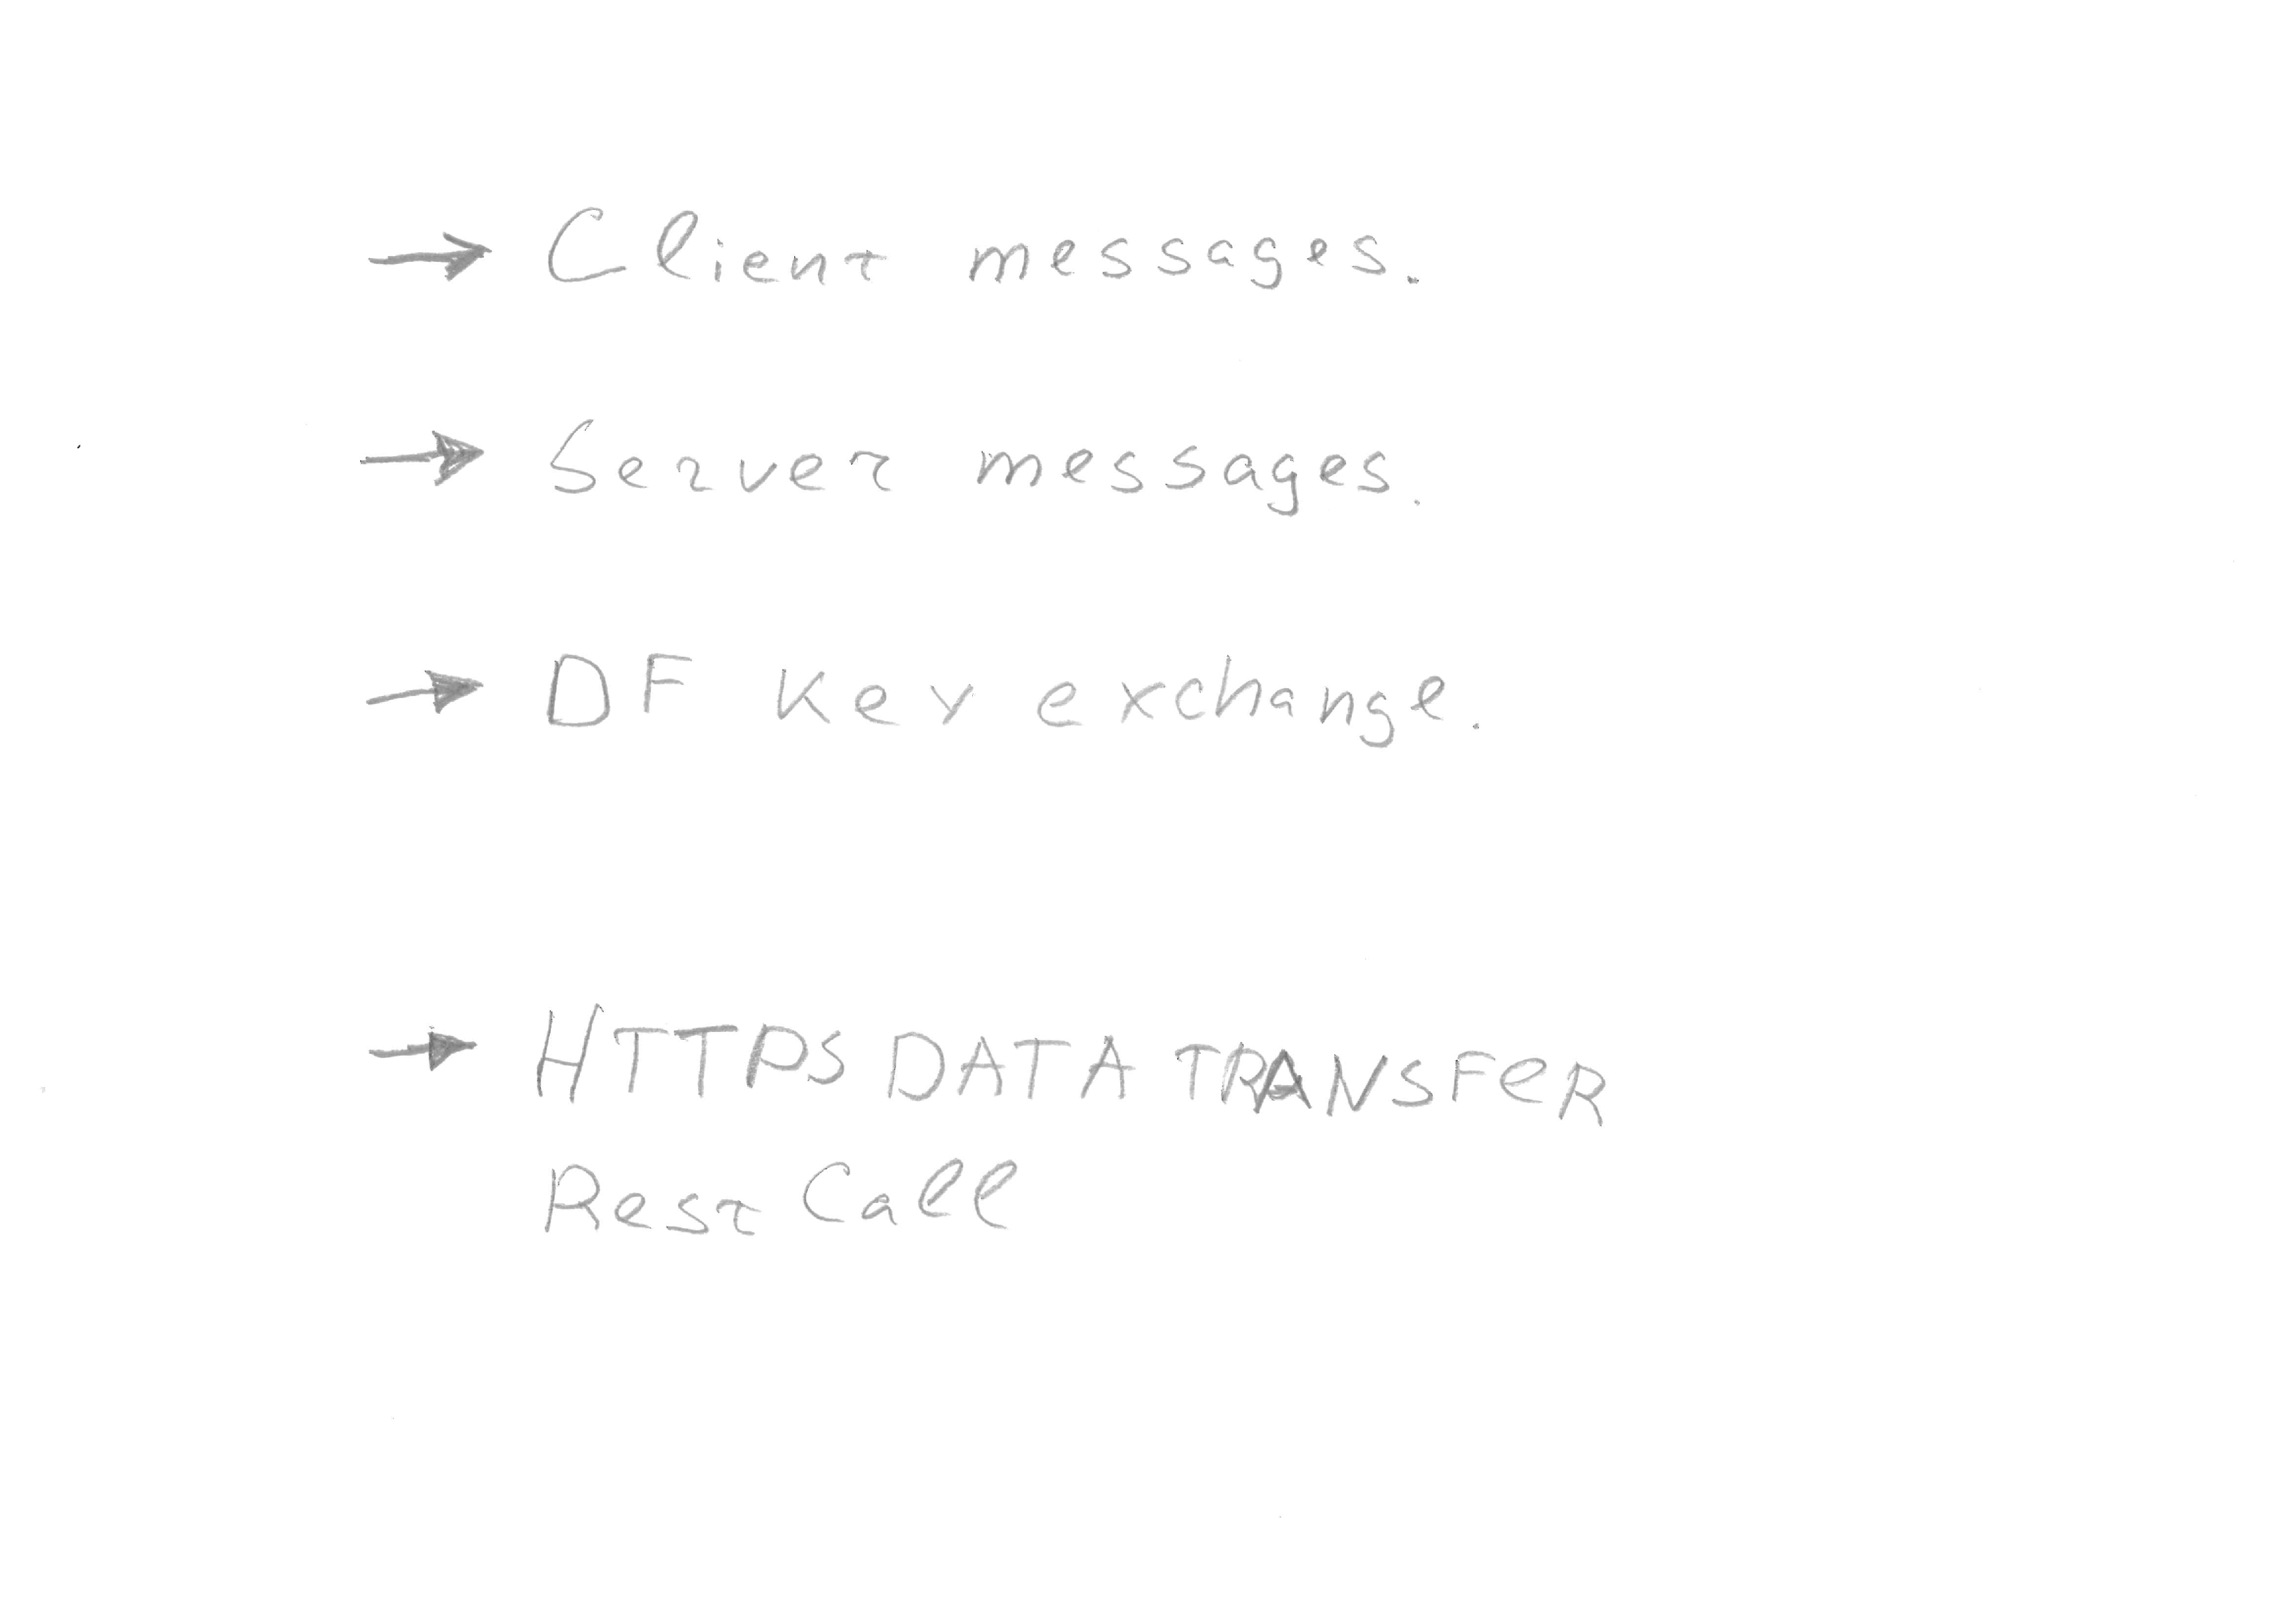 → Client messages.
→ Server messages.
→ DF key exchange.
→ HTTPS DATA TRANSFeR
Rest Call